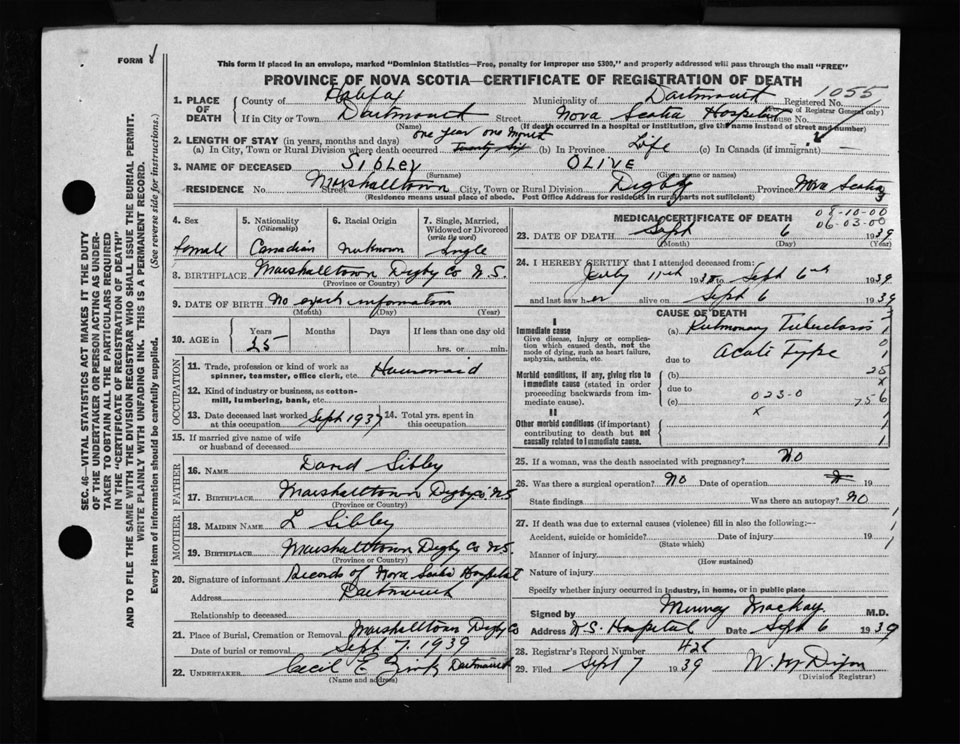 FORM
This form if placed in an envelope, marked "Dominion Statistics—Free, penalty for improper use $300," and properly addressed will pass through the mail "FREE"
PROVINCE OF NOVA SCOTIA—CERTIFICATE OF REGISTRATION OF DEATH
1055
1. PLACE OF DEATH
County of Halifax Municipality of Dartmouth Registered No.
(of Registrar General only)
If in City or Town Dartmouth Street Nova Scotia Hospital House No.
(Name) (If death occurred in a hospital or institution, give the name instead of street and number)
one year one month
2. LENGTH OF STAY (in years, months and days)
(a) In City, Town or Rural Division where death occurred Twenty six (b) In Province Life (c) In Canada (if immigrant) —
3. NAME OF DECEASED SIBLEY OLIVE
(Surname) (Given name or names)
RESIDENCE No. Street Marshalltown City, Town or Rural Division Digby Province Nova Scotia
(Residence means usual place of abode. Post Office Address for residents in rural parts not sufficient)
3
4. Sex
Female
5. Nationality (Citizenship)
Canadian
6. Racial Origin
Unknown
7. Single, Married, Widowed or Divorced (write the word)
Single
8. BIRTHPLACE Marshalltown Digby Co N.S.
(Province or Country)
9. DATE OF BIRTH No exact information
(Month) (Day) (Year)
10. AGE in
Years Months Days If less than one day old
hrs. or min.
OCCUPATION
11. Trade, profession or kind of work as spinner, teamster, office clerk, etc. Housemaid
12. Kind of industry or business, as cotton-mill, lumbering, bank, etc.
13. Date deceased last worked at this occupation Sept 1937
14. Total yrs. spent in this occupation
15. If married give name of wife or husband of deceased
FATHER
16. NAME David Sibley
17. BIRTHPLACE Marshalltown Digby Co. N.S.
(Province or Country)
MOTHER
18. MAIDEN NAME L Sibley
19. BIRTHPLACE Marshalltown Digby Co N.S.
(Province or Country)
20. Signature of informant Records of Nova Scotia Hospital
Address Dartmouth
Relationship to deceased
21. Place of Burial, Cremation or Removal Marshalltown Digby Co
Date of burial or removal Sept 7. 1939
22. UNDERTAKER Cecil E. Zink Dartmouth
(Name and address)
MEDICAL CERTIFICATE OF DEATH
08-10-00
06-03-00
23. DATE OF DEATH Sept 6 1939
(Month) (Day) (Year)
24. I HEREBY CERTIFY that I attended deceased from:
July 11th 193 to Sept 6th 1939
and last saw her alive on Sept 6 1939
CAUSE OF DEATH
I
Immediate cause
Give disease, injury or complication which caused death, not the mode of dying, such as heart failure, asphyxia, asthenia, etc.
(a) Pulmonary Tuberculosis
due to Acute Type
Morbid conditions, if any, giving rise to immediate cause (stated in order proceeding backwards from immediate cause).
(b)
due to
(c) 023-0
25
x
756
x
II
Other morbid conditions (if important) contributing to death but not causally related to immediate cause.
25. If a woman, was the death associated with pregnancy? NO
26. Was there a surgical operation? NO Date of operation 19
State findings Was there an autopsy? NO
27. If death was due to external causes (violence) fill in also the following:—
Accident, suicide or homicide? Date of injury 19
(State which)
Manner of injury
(How sustained)
Nature of injury
Specify whether injury occurred in industry, in home, or in public place
Signed by Murray Mackay M.D.
Address N.S. Hospital Date Sept 6 1939
28. Registrar's Record Number
29. Filed Sept 7 1939
(Division Registrar)
SEC. 46—VITAL STATISTICS ACT MAKES IT THE DUTY
OF THE UNDERTAKER OR PERSON ACTING AS UNDER-
TAKER TO OBTAIN ALL THE PARTICULARS REQUIRED
IN THE "CERTIFICATE OF REGISTRATION OF DEATH"
AND TO FILE THE SAME WITH THE DIVISION REGISTRAR WHO SHALL ISSUE THE BURIAL PERMIT.
WRITE PLAINLY WITH UNFADING INK. THIS IS A PERMANENT RECORD.
Every item of information should be carefully supplied. (See reverse side for instructions.)